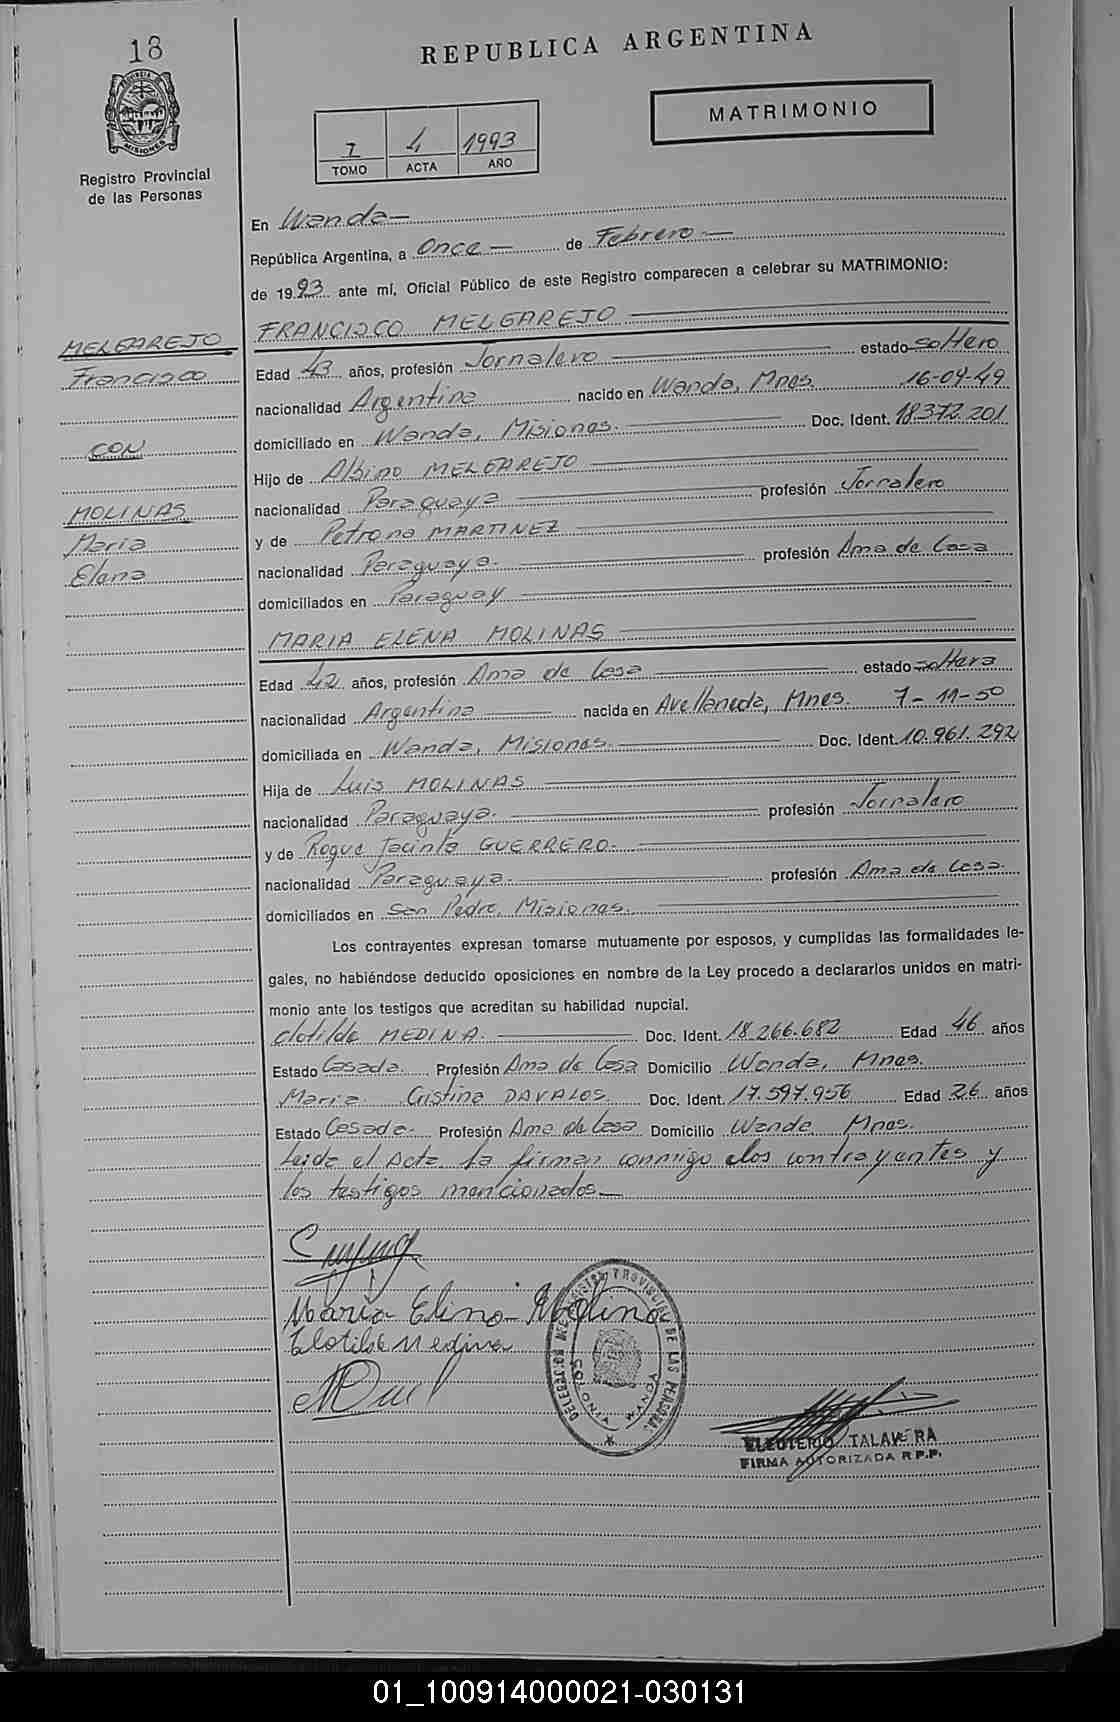 18
REPUBLICA ARGENTINA
MATRIMONIO
PROVINCIA DE MISIONES
Registro Provincial
de las Personas
1 4 1993
TOMO ACTA AÑO
En Wanda—
República Argentina, a Once— de Febrero—
de 1993 ante mí, Oficial Público de este Registro comparecen a celebrar su MATRIMONIO:
MELGAREJO
Francisco
CON
MOLINAS
Maria
Elena
FRANCISCO MELGAREJO
Edad 43 años, profesión Jornalero estado soltero
nacionalidad Argentina nacido en Wanda, Mnes. 16-04-49
domiciliado en Wanda, Misiones. Doc. Ident. 18.372.201
Hijo de Albino MELGAREJO
nacionalidad Paraguaya profesión Jornalero
y de Petrona MARTINEZ
nacionalidad Paraguaya. profesión Ama de Casa
domiciliados en Paraguay
MARIA ELENA MOLINAS
Edad 42 años, profesión Ama de Casa estado soltera
nacionalidad Argentina nacida en Avellaneda, Mnes. 7-11-50
domiciliada en Wanda, Misiones. Doc. Ident. 10.961.292
Hija de Luis MOLINAS
nacionalidad Paraguaya. profesión Jornalero
y de Roque Jacinta GUERRERO.
nacionalidad Paraguaya. profesión Ama de Casa.
domiciliados en San Pedro, Misiones.
Los contrayentes expresan tomarse mutuamente por esposos, y cumplidas las formalidades le-
gales, no habiéndose deducido oposiciones en nombre de la Ley procedo a declararlos unidos en matri-
monio ante los testigos que acreditan su habilidad nupcial.
Clotilde MEDINA. Doc. Ident. 18.266.682 Edad 46 años
Estado Casada. Profesión Ama de Casa Domicilio Wanda, Mnes.
Maria Cristina DAVALOS Doc. Ident. 17.597.956 Edad 26 años
Estado Casada. Profesión Ama de Casa Domicilio Wanda Mnes.
Leida el Acta, la firman conmigo elos contrayentes y
los testigos mencionados—
Maria Elina Molina
Clotilde Medina
DELEGACION DEL REGISTRO PROVINCIAL DE LAS PERSONAS
COLONIA WANDA
ELEUTERIO TALAVERA
FIRMA AUTORIZADA R P.P.
01_100914000021-030131